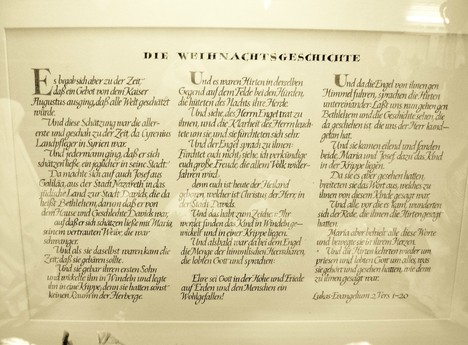 DIE WEIHNACHTSGESCHICHTE
Es begab sich aber zu der Zeit,
daß ein Gebot von dem Kaiser
Augustus ausging, daß alle Welt geschätzt
würde.
Und diese Schätzung war die aller-
erste und geschah zu der Zeit, da Cyrenius
Landpfleger in Syrien war.
Und jedermann ging, daß er sich
schätzen ließe, ein jeglicher in seine Stadt.
Da machte sich auch auf Josef aus
Galiläa, aus der Stadt Nazareth, in das
jüdische Land zur Stadt Davids, die da
heißt Bethlehem, darum daß er von
dem Hause und Geschlechte Davids war,
auf daß er sich schätzen ließe mit Maria,
seinem vertrauten Weibe, die war
schwanger.
Und als sie daselbst waren, kam die
Zeit, daß sie gebären sollte.
Und sie gebar ihren ersten Sohn
und wickelte ihn in Windeln und legte
ihn in eine Krippe, denn sie hatten sonst
keinen Raum in der Herberge.
Und es waren Hirten in derselben
Gegend auf dem Felde bei den Hürden,
die hüteten des Nachts ihre Herde.
Und siehe, des Herrn Engel trat zu
ihnen, und die Klarheit des Herrn leuch-
tete um sie, und sie fürchteten sich sehr.
Und der Engel sprach zu ihnen:
Fürchtet euch nicht, siehe, ich verkündige
euch große Freude, die allem Volk wider-
fahren wird;
denn euch ist heute der Heiland
geboren, welcher ist Christus, der Herr, in
der Stadt Davids.
Und das habt zum Zeichen: Ihr
werdet finden das Kind in Windeln ge-
wickelt und in einer Krippe liegen.
Und alsbald war da bei dem Engel
die Menge der himmlischen Heerscharen,
die lobten Gott und sprachen:
Ehre sei Gott in der Höhe und Friede
auf Erden und den Menschen ein
Wohlgefallen!
Und da die Engel von ihnen gen
Himmel fuhren, sprachen die Hirten
untereinander: Laßt uns nun gehen gen
Bethlehem und die Geschichte sehen, die
da geschehen ist, die uns der Herr kund-
getan hat.
Und sie kamen eilend und fanden
beide, Maria und Josef, dazu das Kind
in der Krippe liegen.
Da sie es aber gesehen hatten,
breiteten sie das Wort aus, welches zu
ihnen von diesem Kinde gesagt war.
Und alle, vor die es kam, wunderten
sich der Rede, die ihnen die Hirten gesagt
hatten.
Maria aber behielt alle diese Worte
und bewegte sie in ihrem Herzen.
Und die Hirten kehrten wieder um,
priesen und lobten Gott um alles, was
sie gehört und gesehen hatten, wie denn
zu ihnen gesagt war.
Lukas Evangelium 2, Vers 1-20